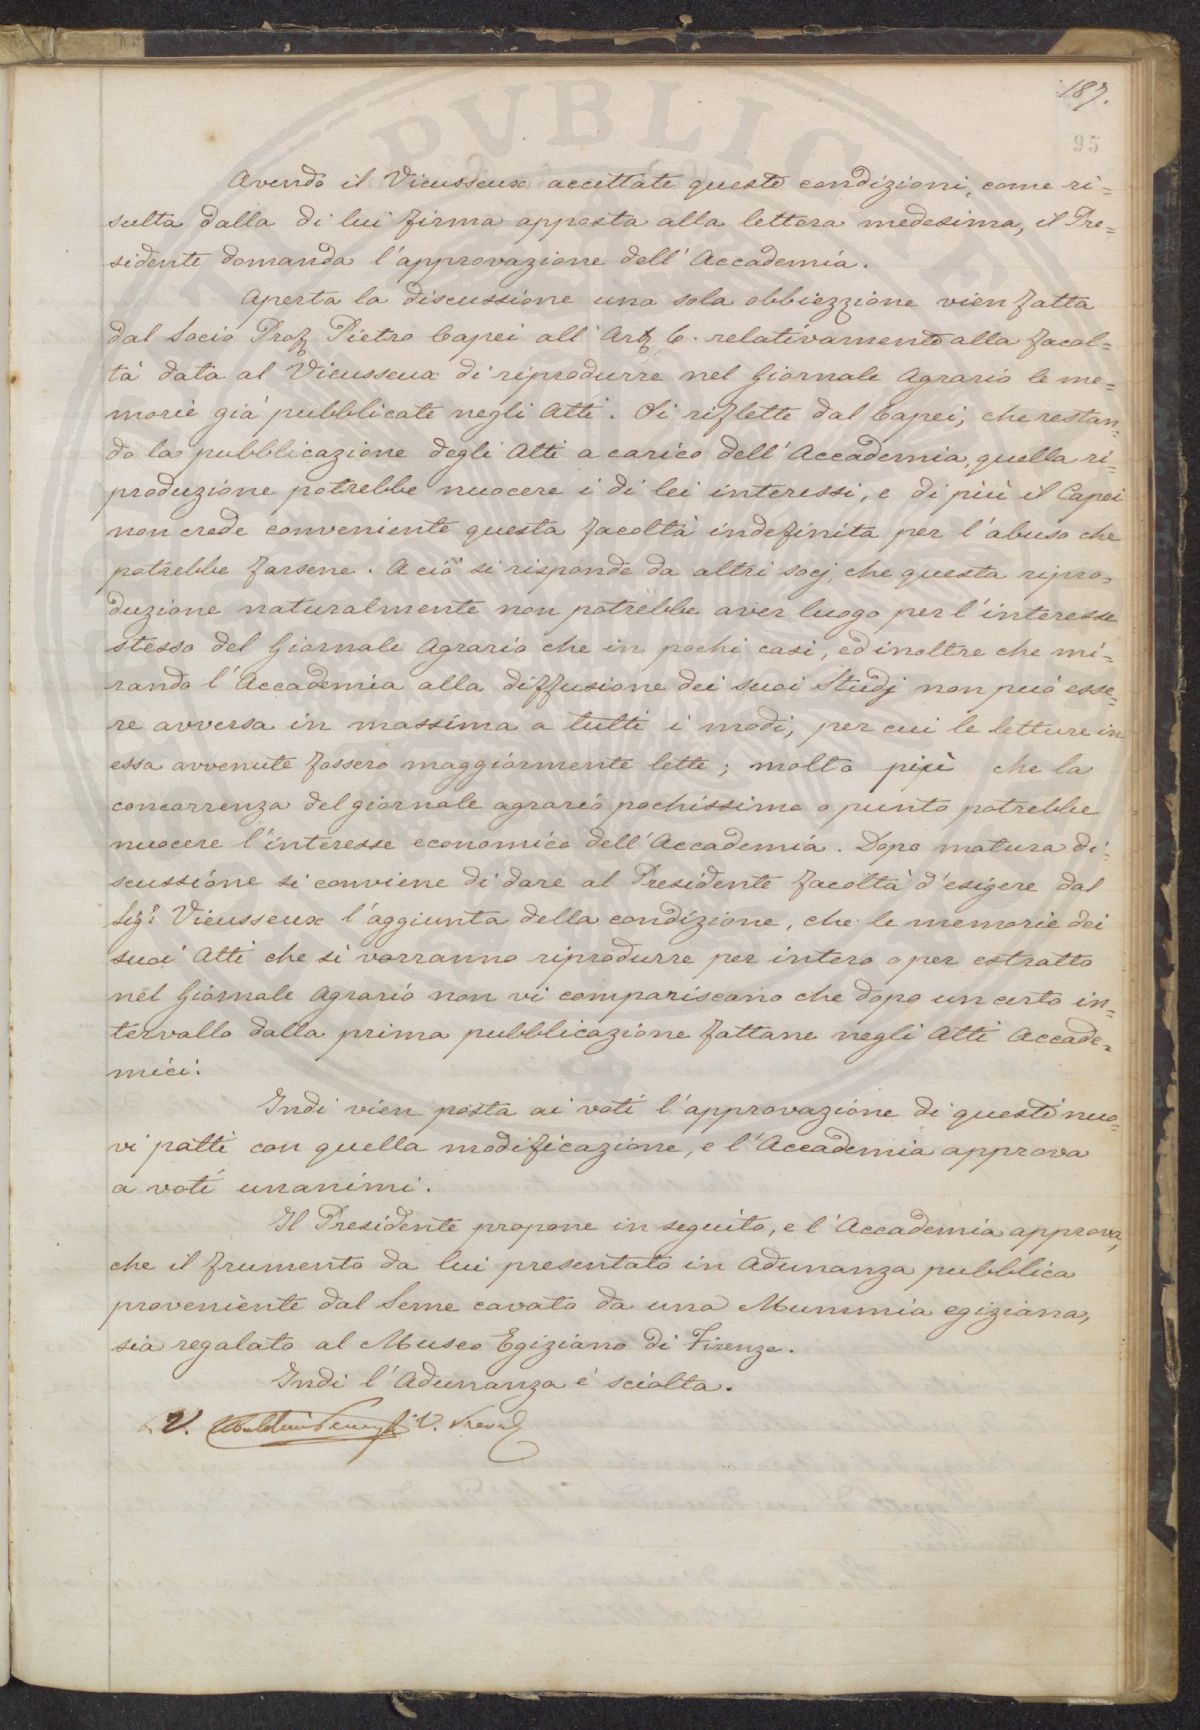 187.
95
Avendo il Vieusseux accettate queste condizioni, come ri=
sulta dalla di lui firma apposta alla lettera medesima, il Pre=
sidente domanda l'approvazione dell'Accademia.
Aperta la discussione una sola obbiezzione vien fatta
dal Socio Prof Pietro Capei all'Art 6. relativamente alla facol=
tà data al Vieusseux di riprodurre nel Giornale Agrario le me=
morie già pubblicate negli Atti. Si riflette dal Capei, che restan=
do la pubblicazione degli Atti a carico dell'Accademia, quella ri=
produzione potrebbe nuocere i di lei interessi, e di più il Capei
non crede conveniente questa facoltà indefinita per l'abuso che
potrebbe farsene. A ciò si risponde da altri socj, che questa ripro=
duzione naturalmente non potrebbe aver luogo per l'interesse
stesso del Giornale Agrario che in pochi casi, ed inoltre che mi=
rando l'Accademia alla diffusione dei suoi Studj non può esse=
re avversa in massima a tutti i modi, per cui le letture in
essa avvenute fossero maggiormente lette; molto più che la
concorrenza del giornale agrario pochissimo o punto potrebbe
nuocere l'interesse economico dell'Accademia. Dopo matura di=
scussione si conviene di dare al Presidente facoltà d'esigere dal
Sigr Vieusseux l'aggiunta della condizione, che le memorie dei
suoi Atti che si vorranno riprodurre per intero o per estratto
nel Giornale Agrario non vi compariscano che dopo un certo in=
tervallo dalla prima pubblicazione fattane negli Atti Accade=
mici.
Indi vien posta ai voti l'approvazione di questi nuo=
vi patti con quella modificazione, e l'Accademia approva
a voti unanimi.
Il Presidente propone in seguito, e l'Accademia approva,
che il frumento da lui presentato in Adunanza pubblica
proveniente dal Seme cavato da una Mummia egiziana,
sia regalato al Museo Egiziano di Firenze.
Indi l'Adunanza è sciolta.
V. V. Presid
PVBLIC